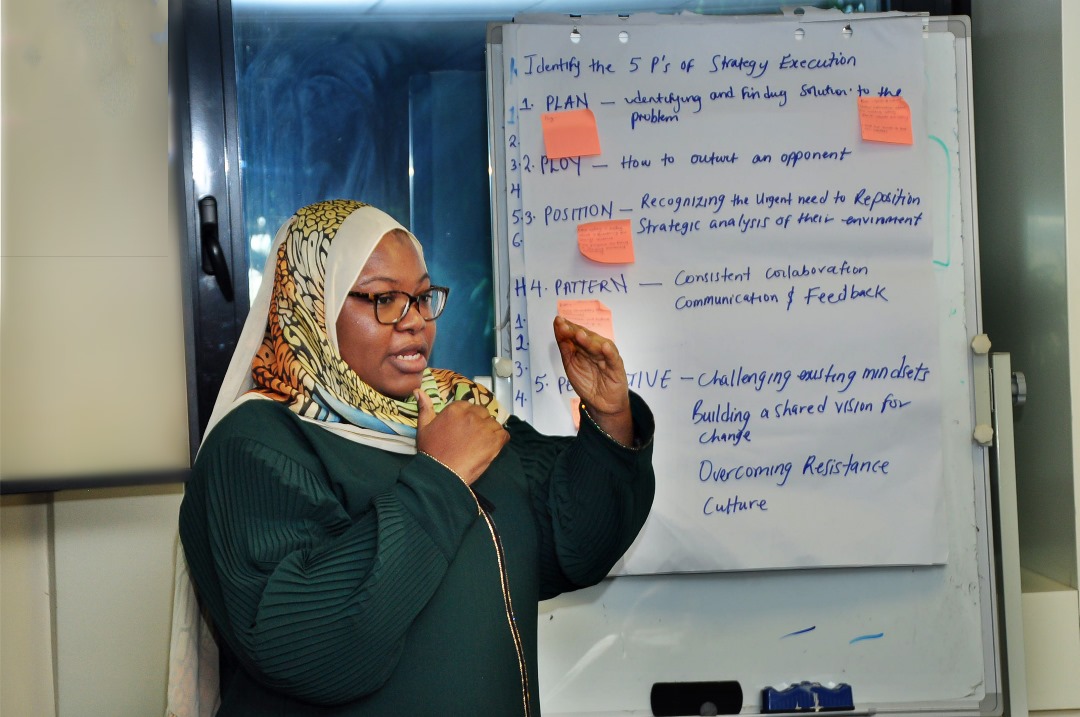 Identify the 5 P's of Strategy Execution
1. PLAN — identifying and finding solution to the
problem
2. PLOY — How to outwit an opponent
3. POSITION — Recognizing the Urgent need to Reposition
Strategic analysis of their envinment
4. PATTERN — Consistent collaboration
Communication & Feedback
5. PE TIVE — Challenging existing mindsets
Building a shared vision for
change
Overcoming Resistance
Culture
1
2.
3.
4
5.
6.
H
1.
2
3.
4.